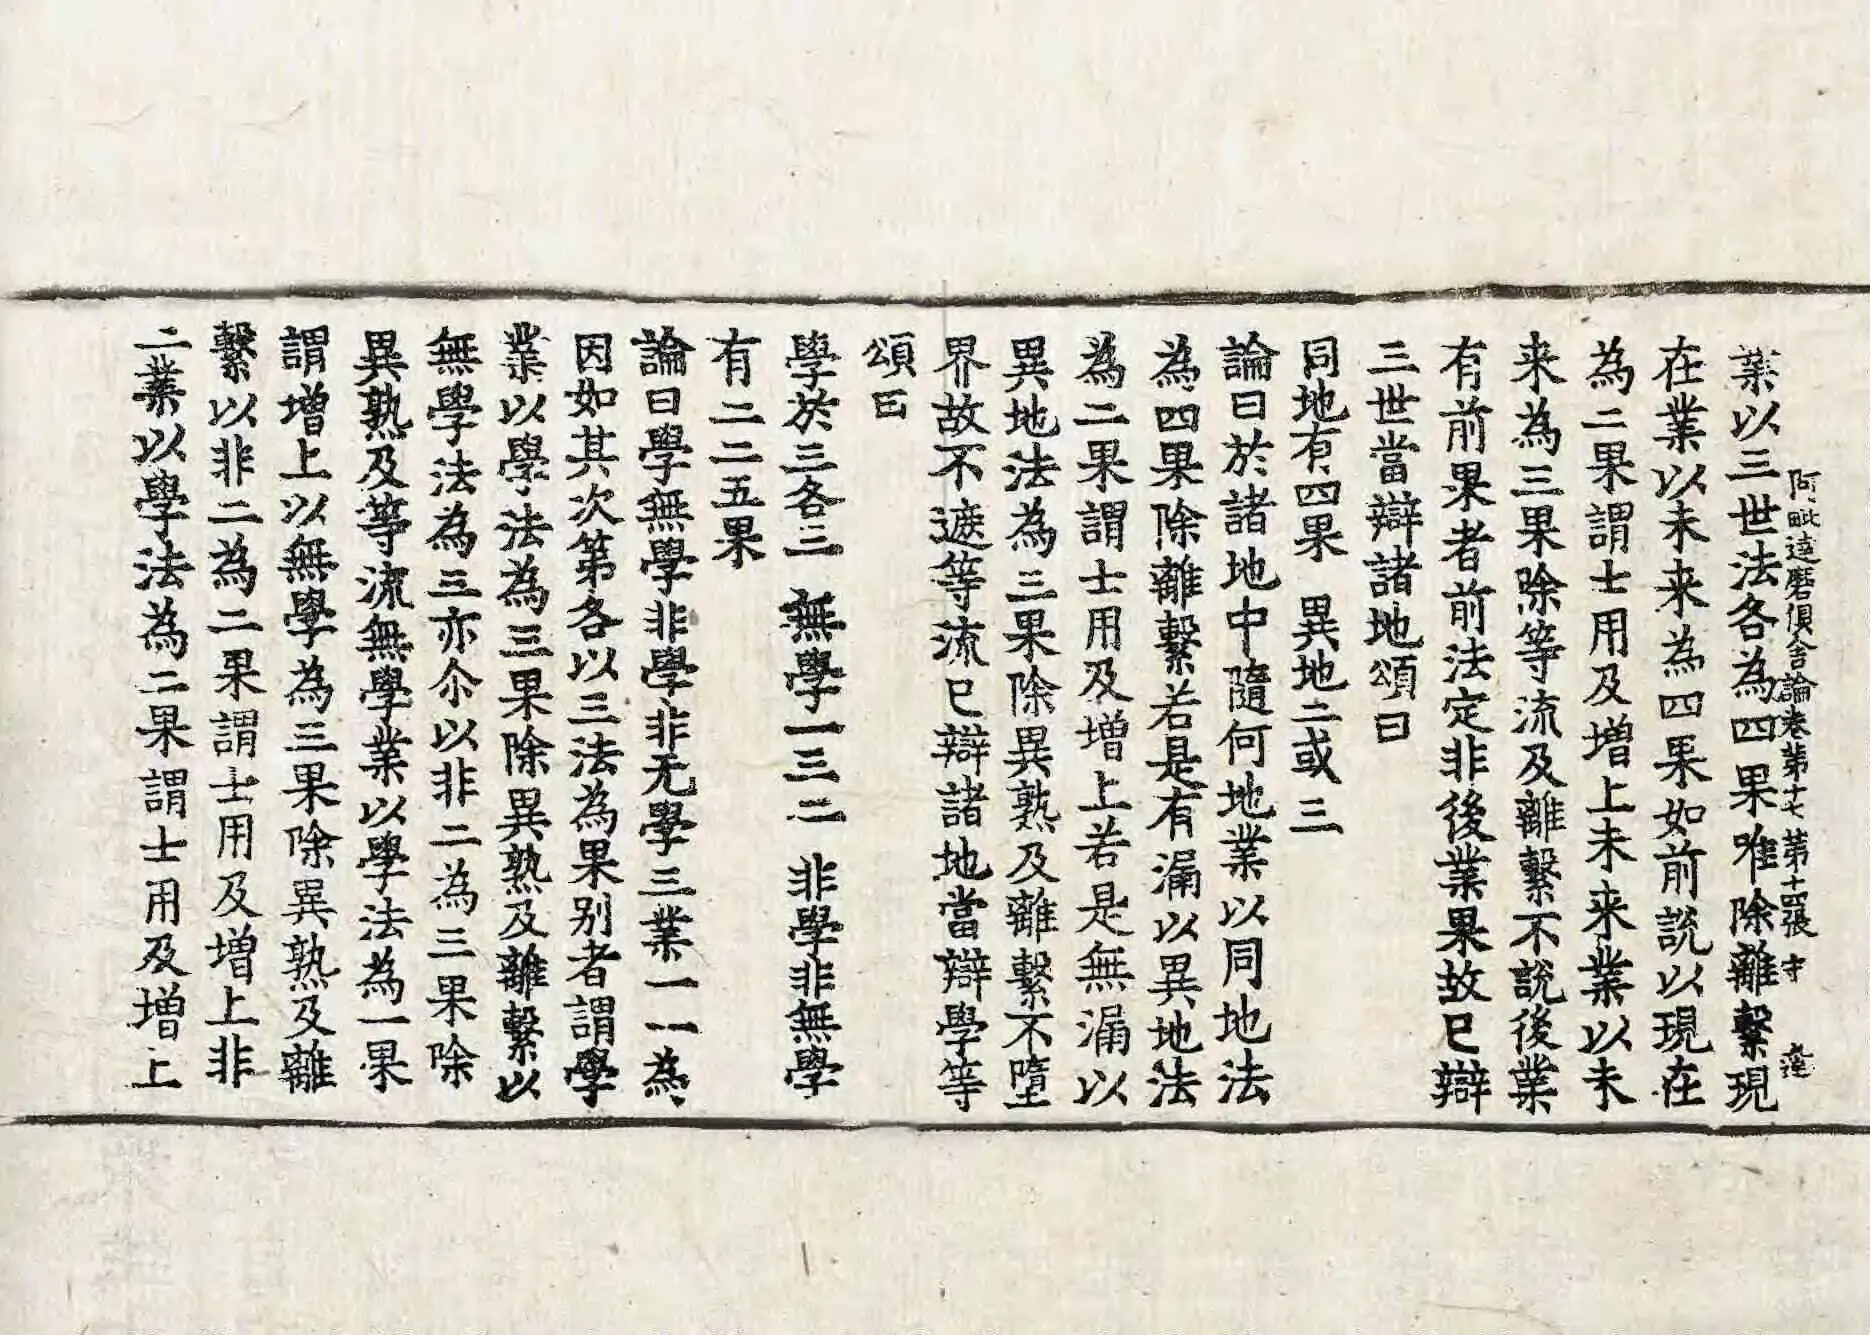 阿毗達磨俱舍論卷第十七 第十四張 寸
業以三世法各為四果唯除離繫現
在業以未来為四果如前說以現在
為二果謂士用及增上未来業以未
来為三果除等流及離繫不說後業
有前果者前法定非後業果故已辯
三世當辯諸地頌曰
同地有四果 異地二或三
論曰於諸地中隨何地業以同地法
為四果除離繫若是有漏以異地法
為二果謂士用及增上若是無漏以
異地法為三果除異熟及離繫不墮
界故不遮等流已辯諸地當辯學等
頌曰
學於三各三 無學一三二 非學非無學
有二二五果
論曰學無學非學非无學三業一一為
因如其次第各以三法為果别者謂學
業以學法為三果除異熟及離繫以
無學法為三亦尒以非二為三果除
異熟及等流無學業以學法為一果
謂增上以無學為三果除異熟及離
繫以非二為二果謂士用及增上非
二業以學法為二果謂士用及增上